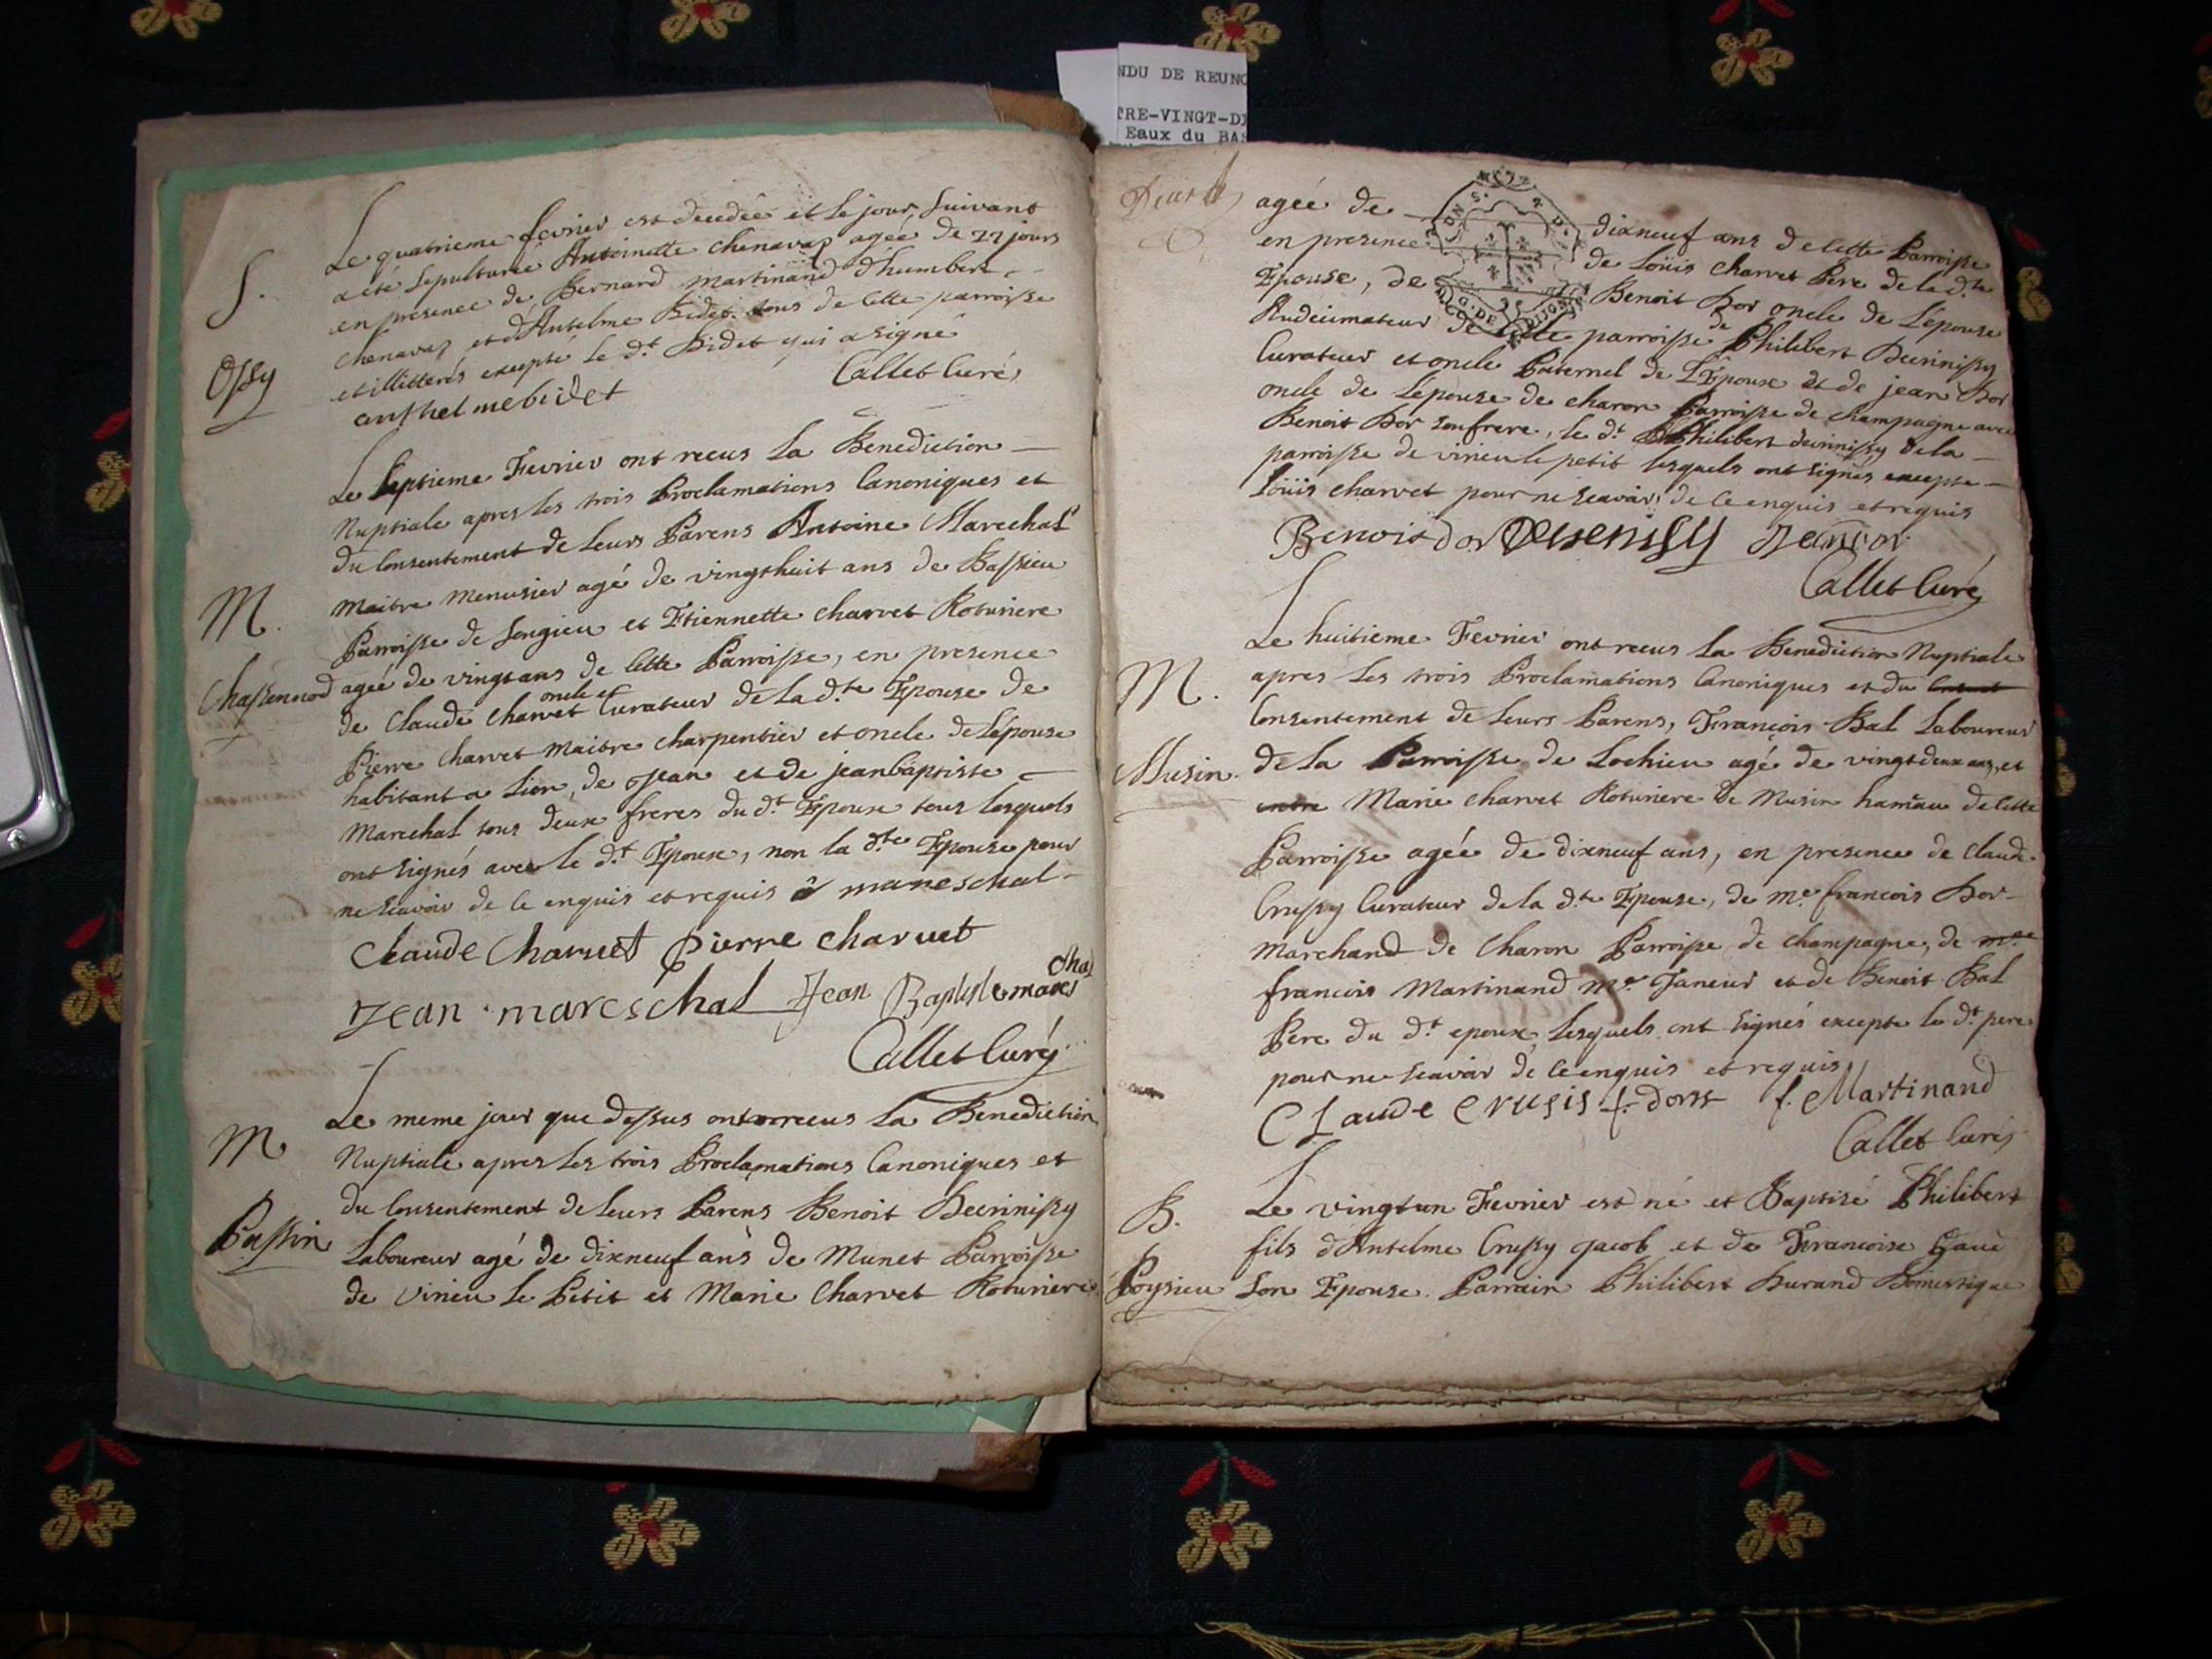 NDU DE REUNO
TRE-VINGT-DI
Eaux du BAS
S.
Ossy
Le quatrieme fevrier est decedée et le jour suivant
a eté sepulturée Antoinette Chenavaz agée de 22 jours
en presence de Bernard Martinand d'humbert
Chenavaz et d'Antelme Bidet tous de cette parroisse
et illitterés excepté le dt. Bidet qui a signé
anthelme bidet
Callet Curé
M.
Chassennod
Le septieme Fevrier ont recus La Benediction
Nuptiale apres les trois Proclamations Canoniques et
du Consentement de Leurs Parens Antoine Marechal
Maitre Menusier agé de vingthuit ans de Bassieu
Parroisse de Songieu et Etiennette Charvet Roturiere
agée de vingt ans de Cette Parroisse, en presence
de Claude Charvet oncle et Curateur de La dte. Epouse de
Pierre Charvet Maitre Charpentier et oncle de L'épouse
habitant a Lion, de Jean et de jeanbaptiste
Marechal tous deux freres du dt. Epoux tous Lesquels
ont signés avec le dt. Epoux, non la dte. Epouse pour
ne scavoir de ce enquis et requis a mareschal
Claude Charvet Pierre charvet
Jean mareschal Jean Baptiste mares
chal
Callet Curé
M
Passin
Le meme jour que dessus ont recus La Benediction
Nuptiale apres les trois Proclamations Canoniques et
du Consentement de Leurs Parens Benoit Decrinissy
Laboureur agé de dixneuf ans de Munet Parroisse
de Virieu Le Petit et Marie Charvet Roturiere
agée de dixneuf ans de Cette Parroisse
en presence de Loüis Charvet Pere de la dte
Epouse, de Benoit Dor oncle de L'epouse
de Cette parroisse de Philibert Decrinissy
Curateur et oncle Paternel de L'Epoux et de jean Dor
oncle de L'epouse de charon Parroisse de Champagne avec
Benoit Dor son frere, le dt. Philibert decrinissy de la
parroisse de virieu le petit lesquels ont signés excepte
Loüis Charvet pour ne scavoir de ce enquis et requis
Benoit dor Jean dor
Callet Curé
M.
Musin.
Le huitieme Fevrier ont recus La Benediction Nuptiale
apres Les trois Proclamations Canoniques et du
Consentement de Leurs Parens, François Bal Laboureur
de La Parroisse de Lochieu agé de vingtdeux ans, et
entre Marie Charvet Roturiere de Musin hameau de Cette
Parroisse agée de dixneuf ans, en presence de Claude
Crussy Curateur de la dte. Epouse, de Me. francois Dor
Marchand de Charon Parroisse de Champagne, de me
francois Martinand Me. Taneur et de Benoit Bal
Pere du dt. epoux, Lesquels ont signés excepte le dt. pere
pour ne scavoir de ce enquis et requis
Claude crusis f. dorst f. Martinand
Callet Curé
B.
Poysieu
Le vingtun Fevrier est né et Baptisé Philibert
fils d'Antelme Crussy Jacob et de Francoise
Son Epouse. Parrain Philibert Durand Domestique